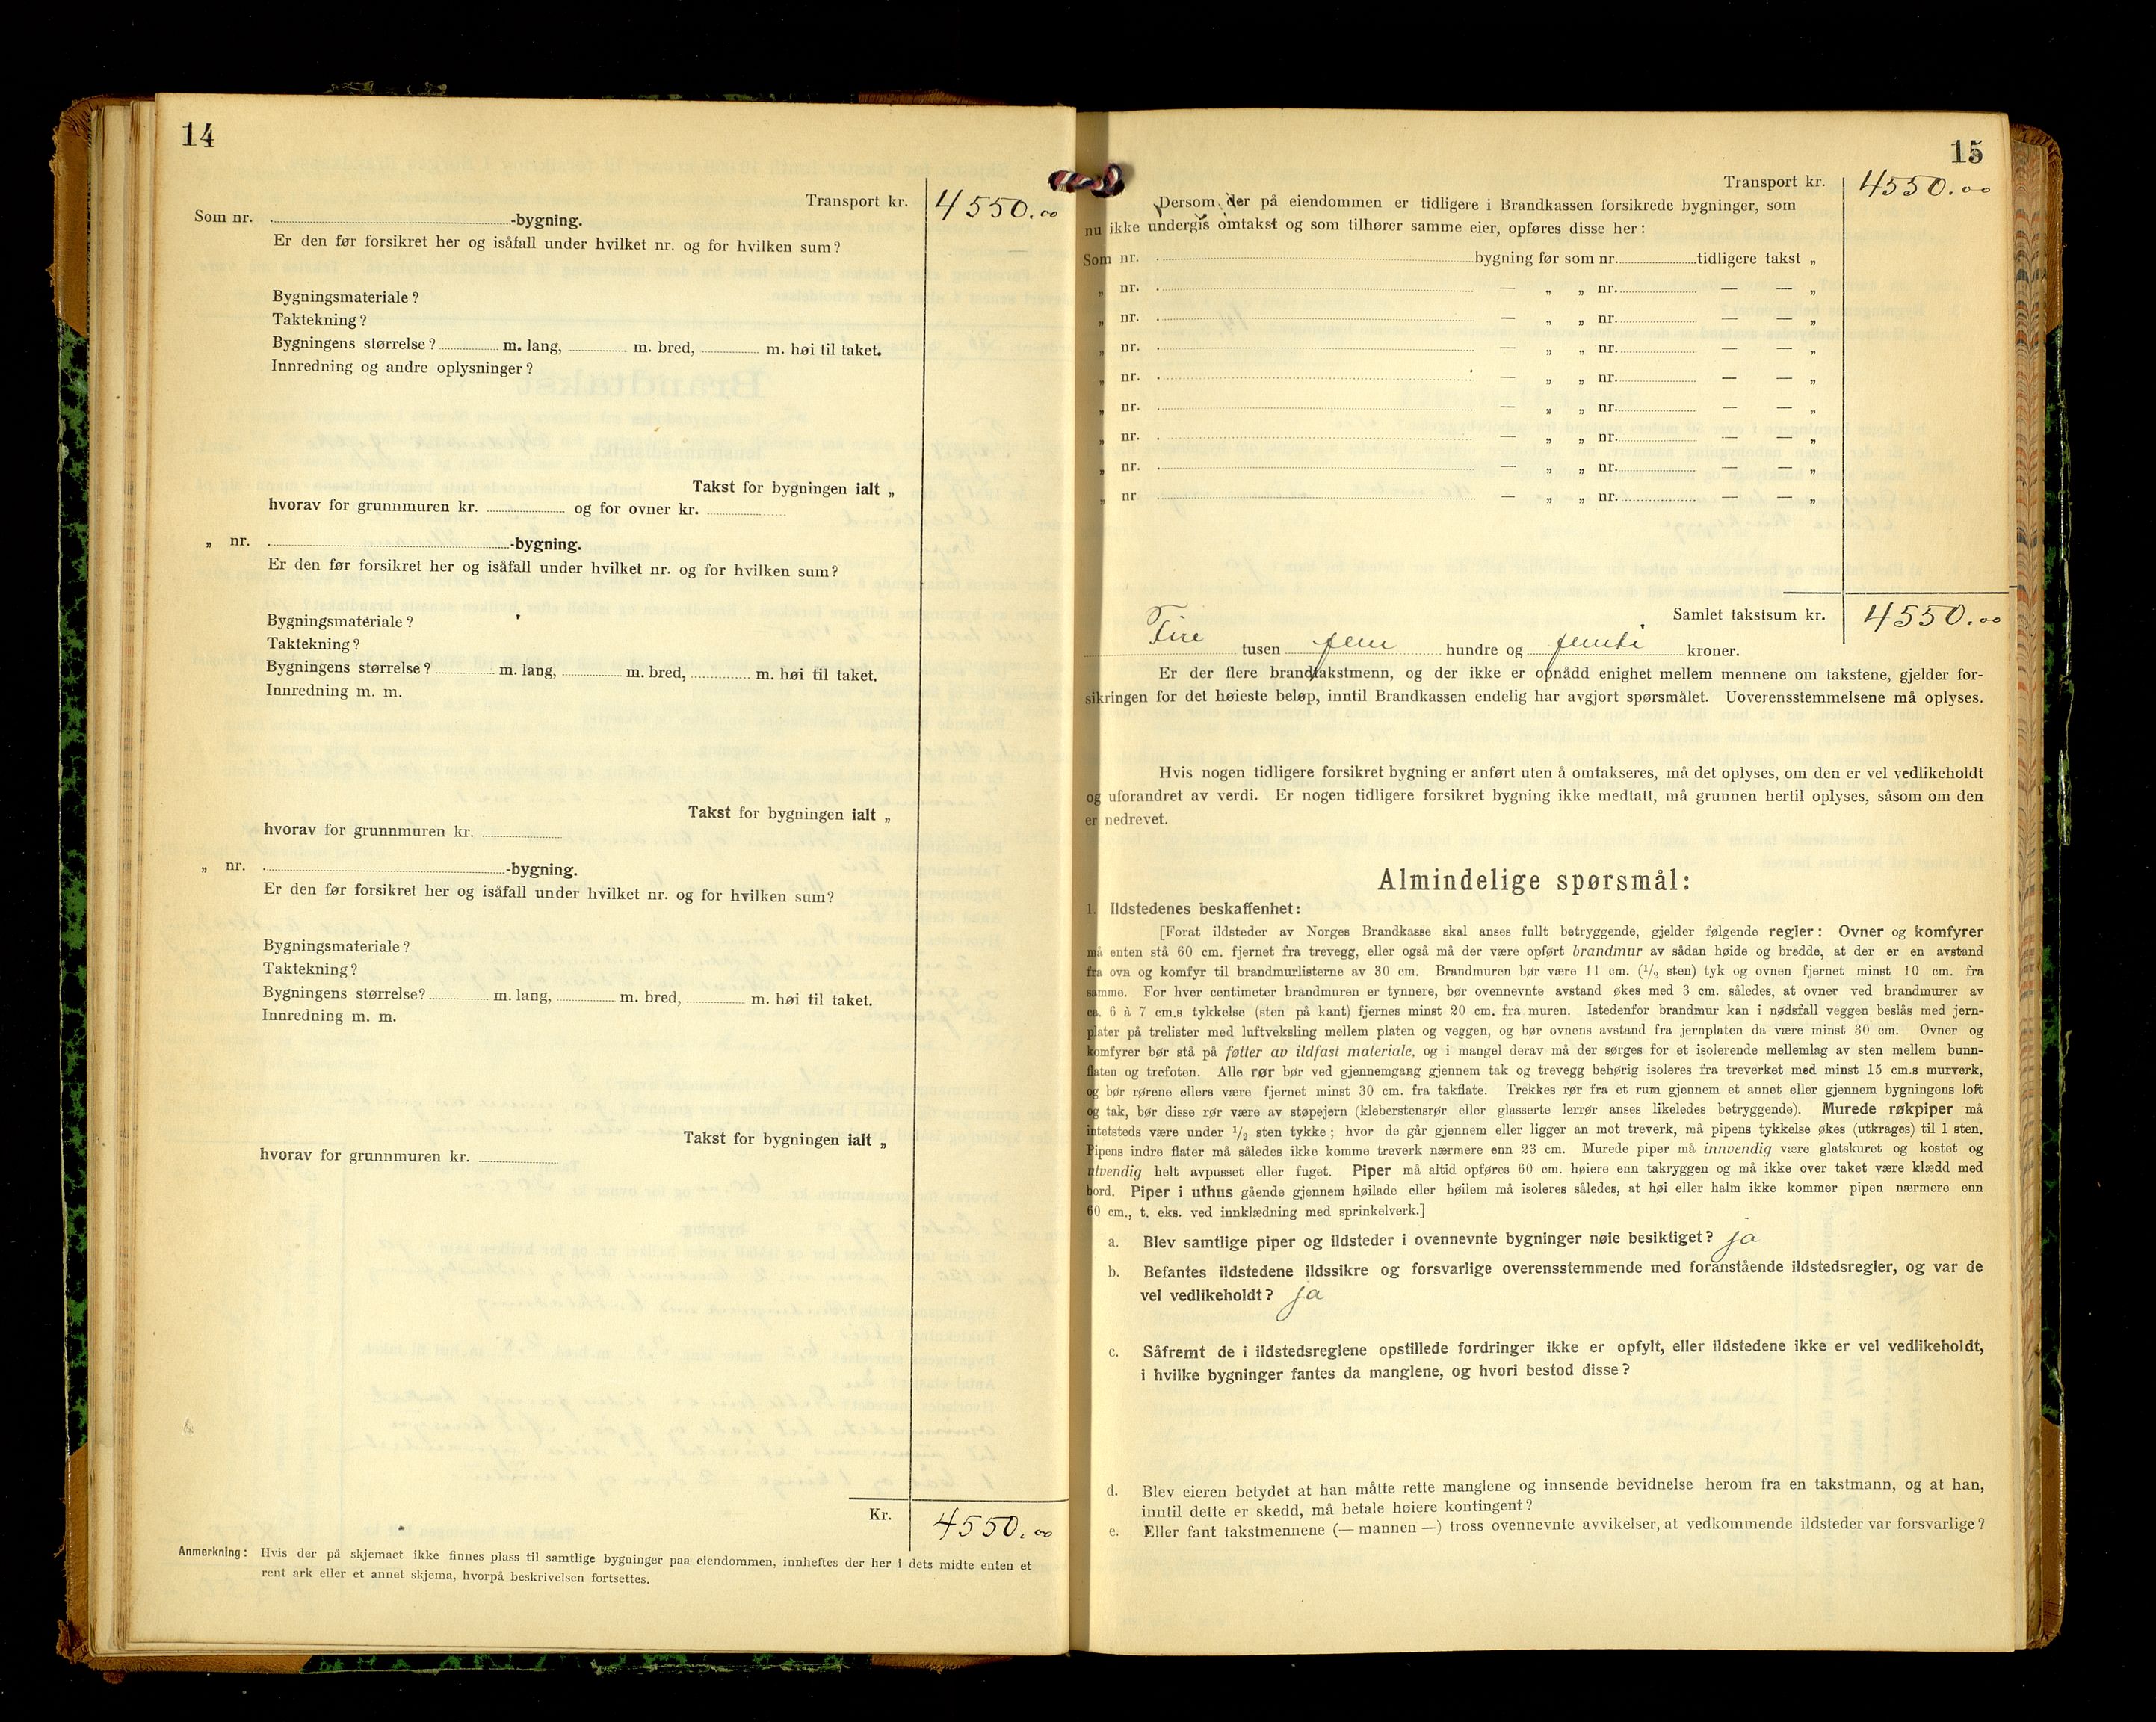 14
Transport kr. 4550.00
Som nr. -bygning.
Er den før forsikret her og isåfall under hvilket nr. og for hvilken sum?
Bygningsmateriale?
Taktekning?
Bygningens størrelse? m. lang, m. bred, m. høi til taket.
Innredning og andre oplysninger?
Takst for bygningen ialt „
hvorav for grunnmuren kr. og for ovner kr.
„ nr. -bygning.
Er den før forsikret her og isåfall under hvilket nr. og for hvilken sum?
Bygningsmateriale?
Taktekning?
Bygningens størrelse? m. lang, m. bred, m. høi til taket.
Innredning m. m.
Takst for bygningen ialt „
hvorav for grunnmuren kr.
„ nr. -bygning.
Er den før forsikret her og isåfall under hvilket nr. og for hvilken sum?
Bygningsmateriale?
Taktekning?
Bygningens størrelse? m. lang, m. bred, m. høi til taket.
Innredning m. m.
Takst for bygningen ialt „
hvorav for grunnmuren kr.
Kr. 4550.00
Anmerkning: Hvis der på skjemaet ikke finnes plass til samtlige bygninger paa eiendommen, innheftes der her i dets midte enten et
rent ark eller et annet skjema, hvorpå beskrivelsen fortsettes.
15
Transport kr. 4550.00
Dersom der på eiendommen er tidligere i Brandkassen forsikrede bygninger, som
nu ikke undergis omtakst og som tilhører samme eier, opføres disse her:
Som nr. bygning før som nr. tidligere takst „
„ nr. — „ „ nr. — — „
„ nr. — „ „ nr. — — „
„ nr. — „ „ nr. — — „
„ nr. — „ „ nr. — — „
„ nr. — „ „ nr. — — „
„ nr. — „ „ nr. — — „
„ nr. — „ „ nr. — — „
„ nr — „ „ nr. — — „
Samlet takstsum kr. 4550.00
Fire tusen fem hundre og femti kroner.
Er der flere brandtakstmenn, og der ikke er opnådd enighet mellem mennene om takstene, gjelder for-
sikringen for det høieste beløp, inntil Brandkassen endelig har avgjort spørsmålet. Uoverensstemmelsene må oplyses.
Hvis nogen tidligere forsikret bygning er anført uten å omtakseres, må det oplyses, om den er vel vedlikeholdt
og uforandret av verdi. Er nogen tidligere forsikret bygning ikke medtatt, må grunnen hertil oplyses, såsom om den
er nedrevet.
Almindelige spørsmål:
1. Ildstedenes beskaffenhet:
[Forat ildsteder av Norges Brandkasse skal anses fullt betryggende, gjelder følgende regler: Ovner og komfyrer
må enten stå 60 cm. fjernet fra trevegg, eller også må der være opført brandmur av sådan høide og bredde, at der er en avstand
fra ovn og komfyr til brandmurlisterne av 30 cm. Brandmuren bør være 11 cm. (1/2 sten) tyk og ovnen fjernet minst 10 cm. fra
samme. For hver centimeter brandmuren er tynnere, bør ovennevnte avstand økes med 3 cm. således, at ovner ved brandmurer av
ca. 6 à 7 cm.s tykkelse (sten på kant) fjernes minst 20 cm. fra muren. Istedenfor brandmur kan i nødsfall veggen beslås med jern-
plater på trelister med luftveksling mellem platen og veggen, og bør ovnens avstand fra jernplaten da være minst 30 cm. Ovner og
komfyrer bør stå på føtter av ildfast materiale, og i mangel derav må der sørges for et isolerende mellemlag av sten mellem bunn-
flaten og trefoten. Alle rør bør ved gjennemgang gjennem tak og trevegg behørig isoleres fra treverket med minst 15 cm.s murverk,
og bør rørene ellers være fjernet minst 30 cm. fra takflate. Trekkes rør fra et rum gjennem et annet eller gjennem bygningens loft
og tak, bør disse rør være av støpejern (kleberstensrør eller glasserte lerrør anses likeledes betryggende). Murede røkpiper må
intetsteds være under 1/2 sten tykke; hvor de går gjennem eller ligger an mot treverk, må pipens tykkelse økes (utkrages) til 1 sten.
Pipens indre flater må således ikke komme treverk nærmere enn 23 cm. Murede piper må innvendig være glatskuret og kostet og
utvendig helt avpusset eller fuget. Piper må altid opføres 60 cm. høiere enn takryggen og må ikke over taket være klædd med
bord. Piper i uthus gående gjennem høilade eller høilem må isoleres således, at høi eller halm ikke kommer pipen nærmere enn
60 cm., t. eks. ved innklædning med sprinkelverk.]
a. Blev samtlige piper og ildsteder i ovennevnte bygninger nøie besiktiget? ja
b. Befantes ildstedene ildssikre og forsvarlige overensstemmende med foranstående ildstedsregler, og var de
vel vedlikeholdt? ja
c. Såfremt de i ildstedsreglene opstillede fordringer ikke er opfylt, eller ildstedene ikke er vel vedlikeholdt,
i hvilke bygninger fantes da manglene, og hvori bestod disse?
d. Blev eieren betydet at han måtte rette manglene og innsende bevidnelse herom fra en takstmann, og at han,
inntil dette er skedd, må betale høiere kontingent?
e. Eller fant takstmennene (— mannen —) tross ovennevnte avvikelser, at vedkommende ildsteder var forsvarlige?